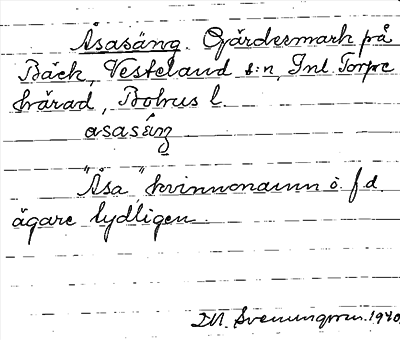 Åsasäng. Gärdesmark på
Bäck, Vesteland s:n, Inl. Torpe
härad, Bohus l.
asasäŋ
"Åsa" kvinnonamn o. f.d.
ägare tydligen.
D.M. Svenungsson. 1940.